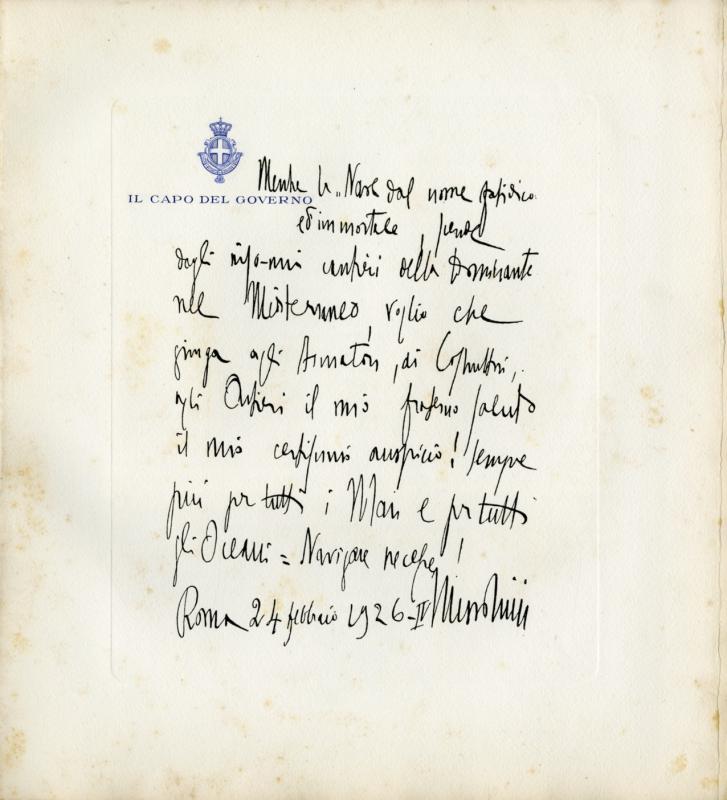 IL CAPO DEL GOVERNO
Mentre la "Nave dal nome fatidico
ed immortale, scende
dagli cantieri della Dominante
nel Mediterraneo, voglio che
giunga agli Armatori, ai Costruttori,
agli Operai il mio fraterno saluto
il mio auspicio! Sempre
più per tutti i Mari e per tutti
gli Oceani = Navigare necesse!
Roma 24 febbraio 1926-IV Mussolini